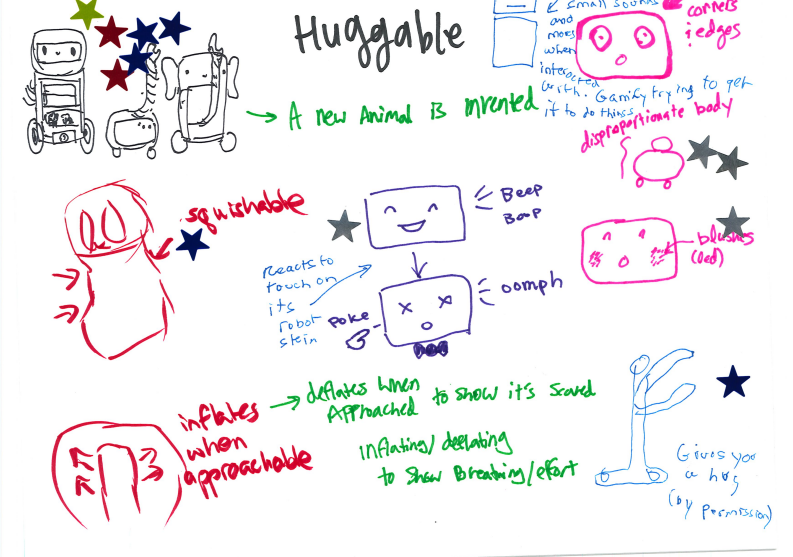 Huggable
small sounds
and
moves
when
interacted
with. Gamify trying to get
it to do things
corners
& edges
→ A new Animal is invented
disproportionate body
squishable
Beep
Boop
Reacts to
touch on
its
robot
skin
poke
oomph
blushes
(led)
inflates
when
approachable
deflates when
Approached to show it's scared
inflating/deflating
to show Breathing/effort
Gives you
a hug
(by permission)